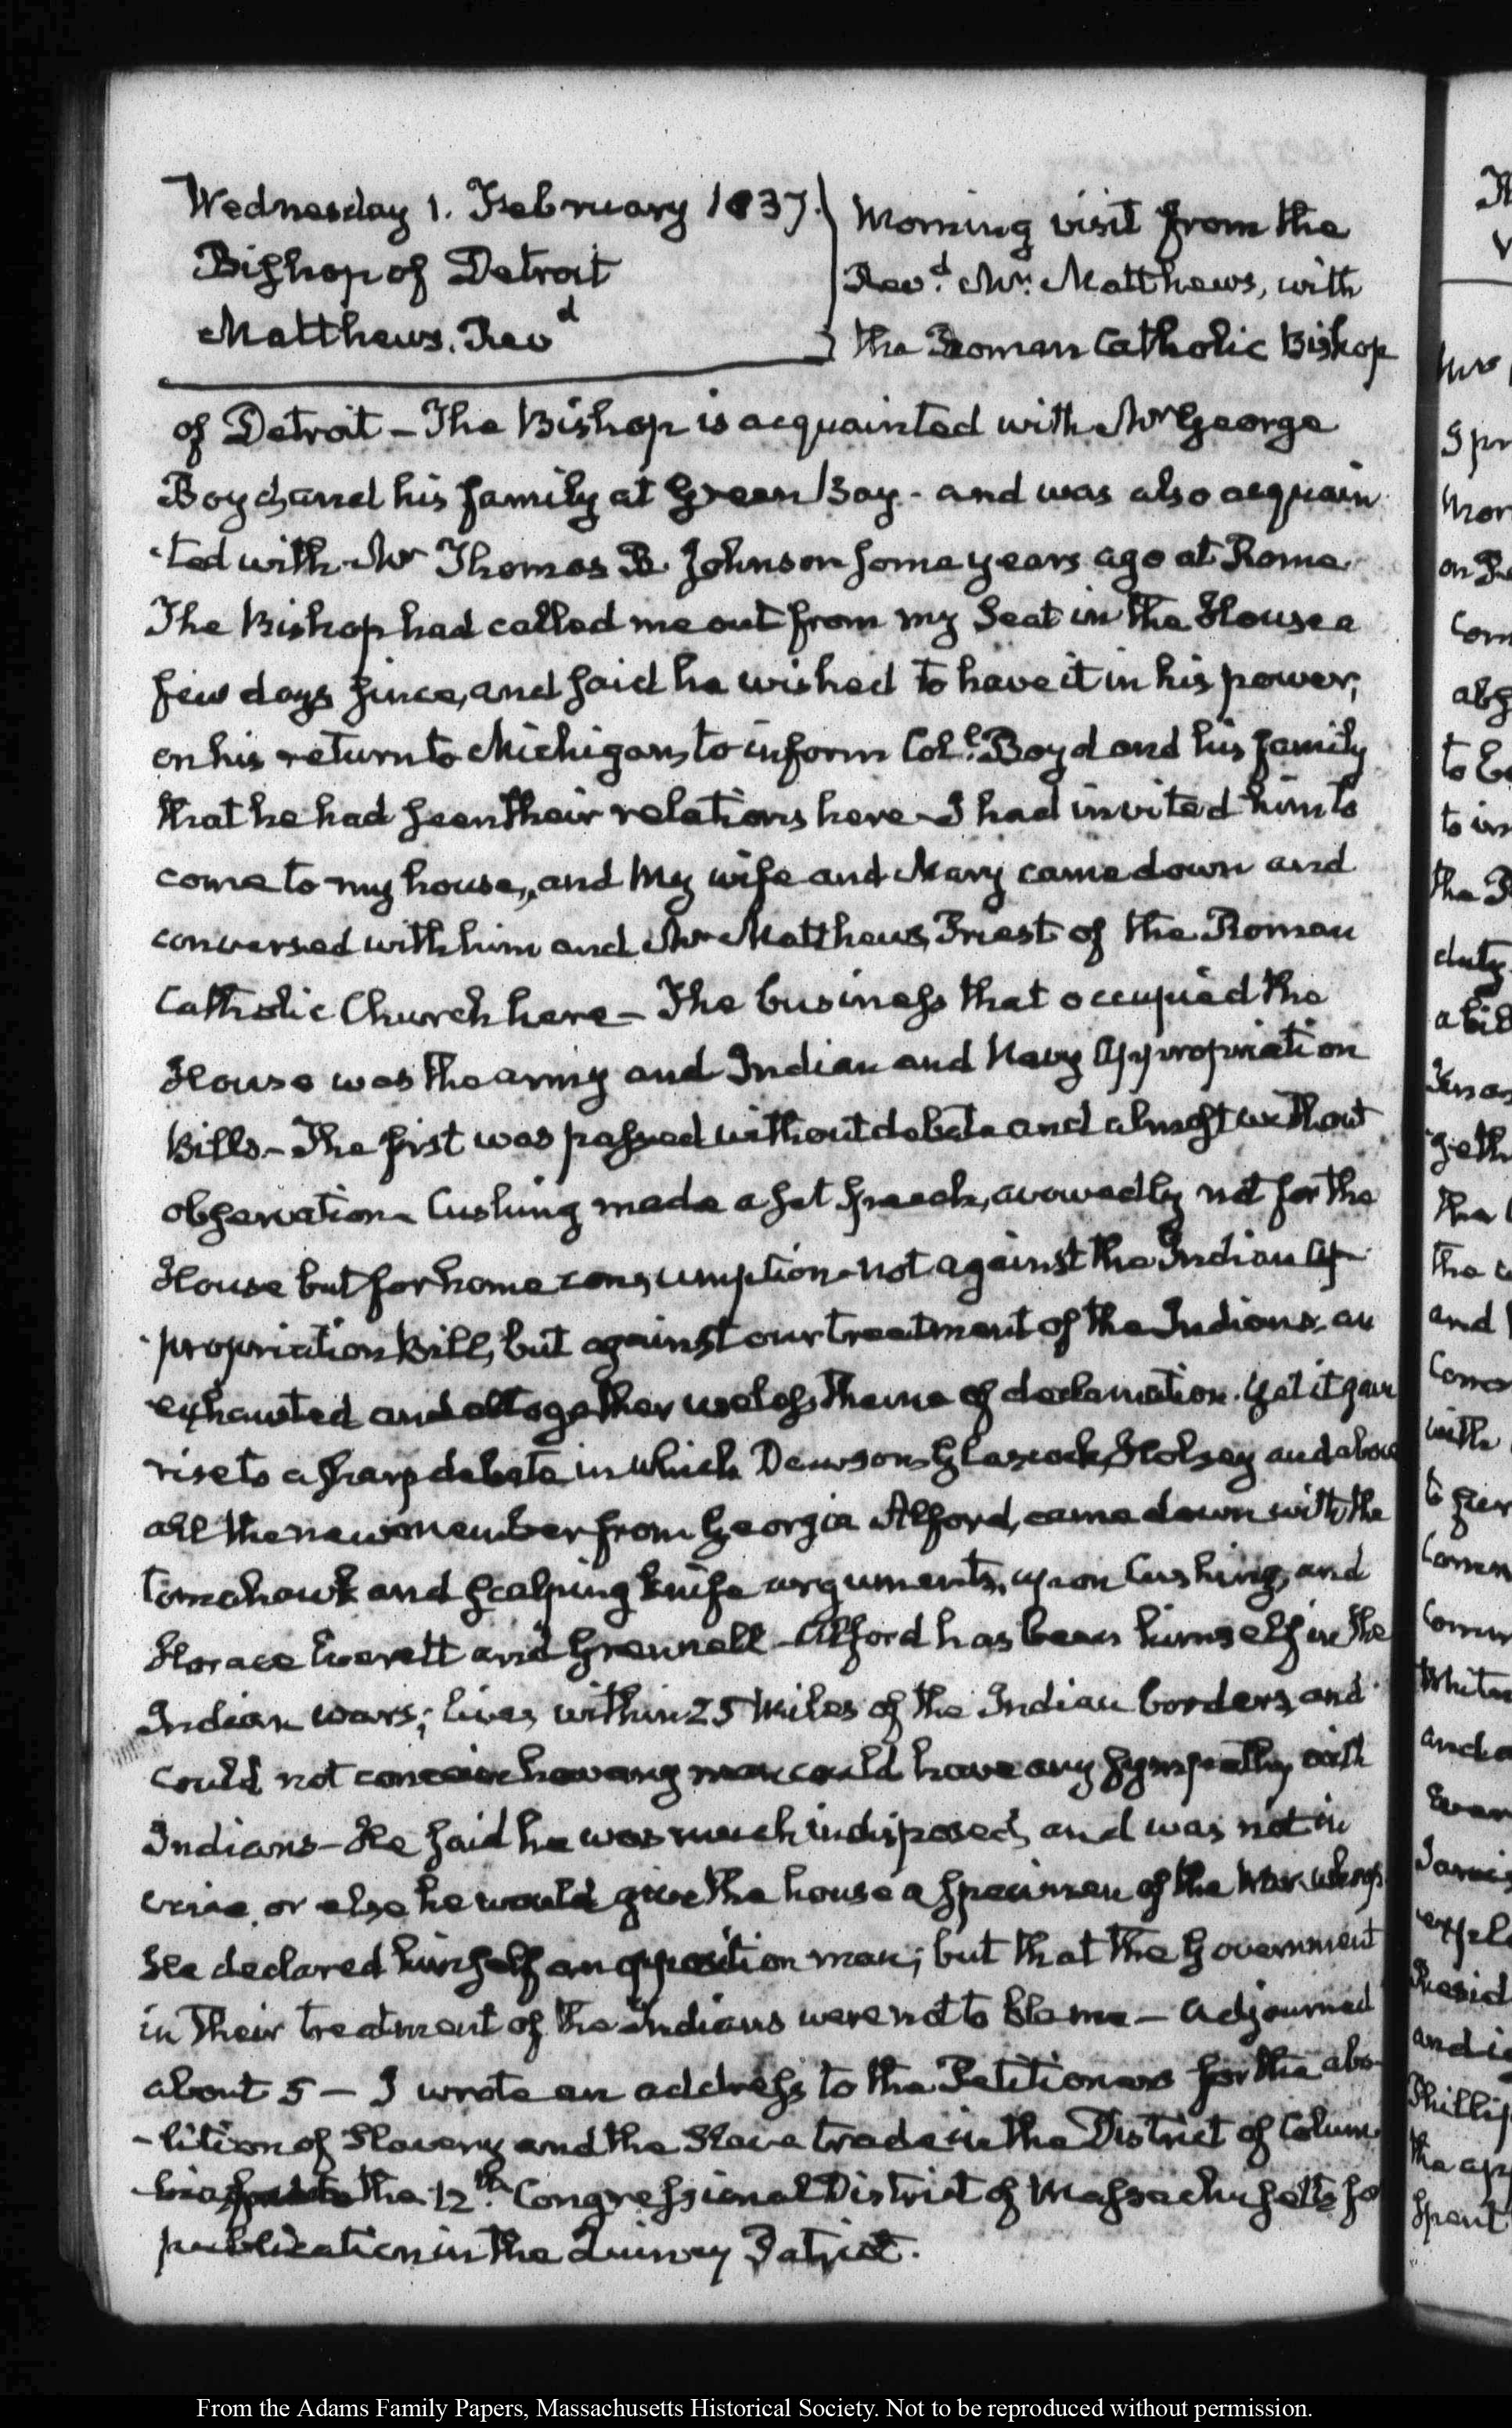 Wednesday 1. February 1837.
Bishop of Detroit
Matthews. Revd
Morning visit from the
Revd. Mr. Matthews, with
the Roman Catholic Bishop
of Detroit – The Bishop is acquainted with Mr George
Boyd and his family at Green Bay - and was also acquain
-ted with Mr Thomas B. Johnson some years ago at Rome.
The Bishop had called me out from my Seat in the House a
few days since, and said he wished to have it in his power,
on his return to Michigan, to inform Coll. Boyd and his family
that he had seen their relations here – I had invited him to
come to my house, and my wife and Mary came down and
conversed with him and Mr Matthews, Priest of the Roman
Catholic Church here – The business that occupied the
House was the army and Indian and Navy Appropriation
Bills – The first was passed without debate and almost without
observation – Cushing made a set speech, avowedly not for the
House but for home consumption – not against the Indian Ap-
-propriation Bill, but against our treatment of the Indians, an
exhausted and altogether useless theme of declamation. Yet it gave
rise to a sharp debate in which Dawson, Glascock, Holsey and above
all the new member from Georgia Alford, came down with the
tomahawk and scalping knife arguments, upon Cushing, and
Horace Everett and Grennell – Alford has been himself in the
Indian wars; lives within 25 miles of the Indian borders, and
could not conceive how any man could have any sympathy with
Indians – He said he was much indisposed, and was not in
voice, or else he would give the house a specimen of the War whoop.
He declared himself an opposition man; but that the Government
in their treatment of the Indians were not to blame – Adjourned
about 5 – I wrote an address to the Petitioners for the abo-
-lition of Slavery and the Slave trade in the District of Colum-
-bia the 12th. Congressional District of Massachusetts fo
publication in the Quincy Patriot.
From the Adams Family Papers, Massachusetts Historical Society. Not to be reproduced without permission.